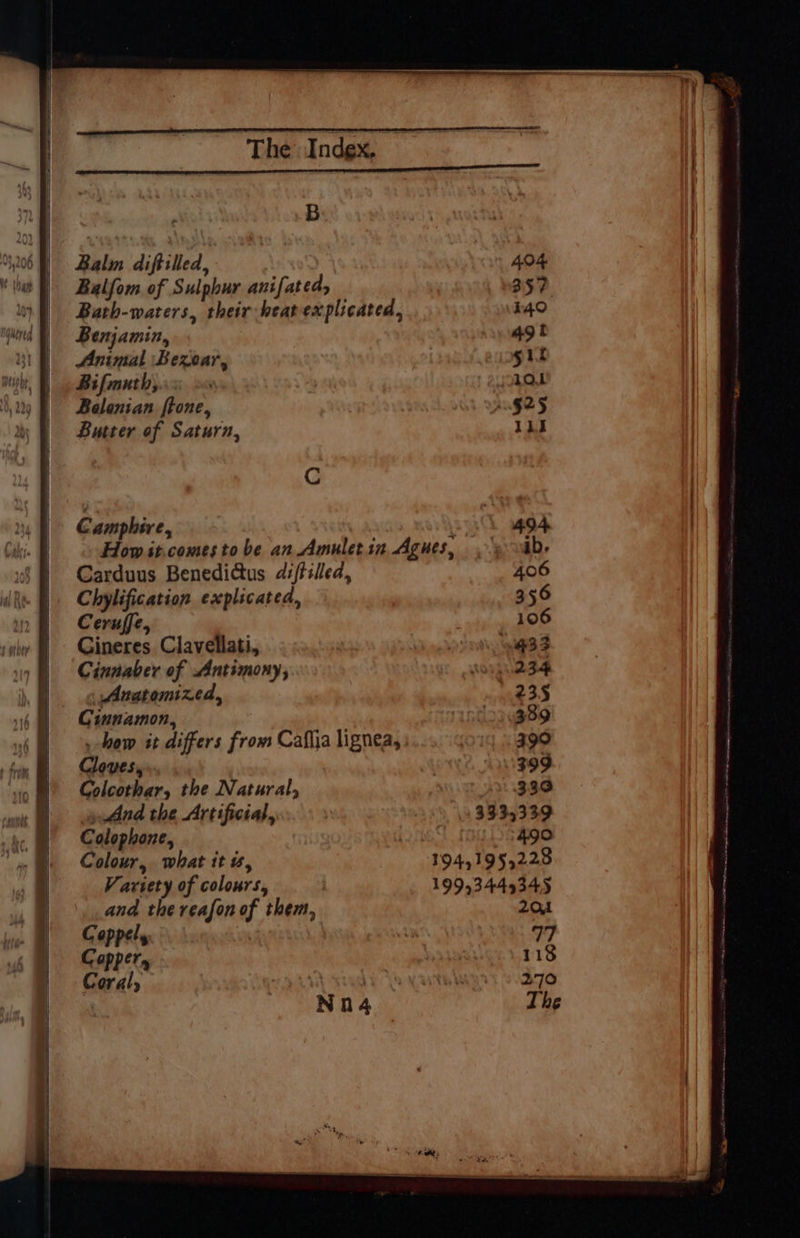 The Index.
B
Balm diſtilled, 404
Balſom of Sulphur aniſated, 357
Bath-waters, their heat explicated, 140
Benjamin, 491
Animal Bezoar, 511
Biſmuth, 101
Bolonian ſtone, 525
Butter of Saturn, 111
C
Camphire, 494
How it comes to be an Amulet in Agues, ib.
Carduus Benedictus diſtilled, 406
Chylification explicated, 356
Ceruſſe, 106
Cineres Clavellati, 433
Cinnaber of Antimony, 234
Anatomized, 235
Cinnamon, 389
how it differs from Caſſia lignea, 390
Cloves, 399
Colcothar, the Natural, 330
And the Artificial, 333,339
Colophone, 490
Colour, what it is, 194,195,228
Variety of colours, 199,344,345
and the reaſon of them, 201
Coppel, 77
Copper, 118
Coral, 270
Nn4 The